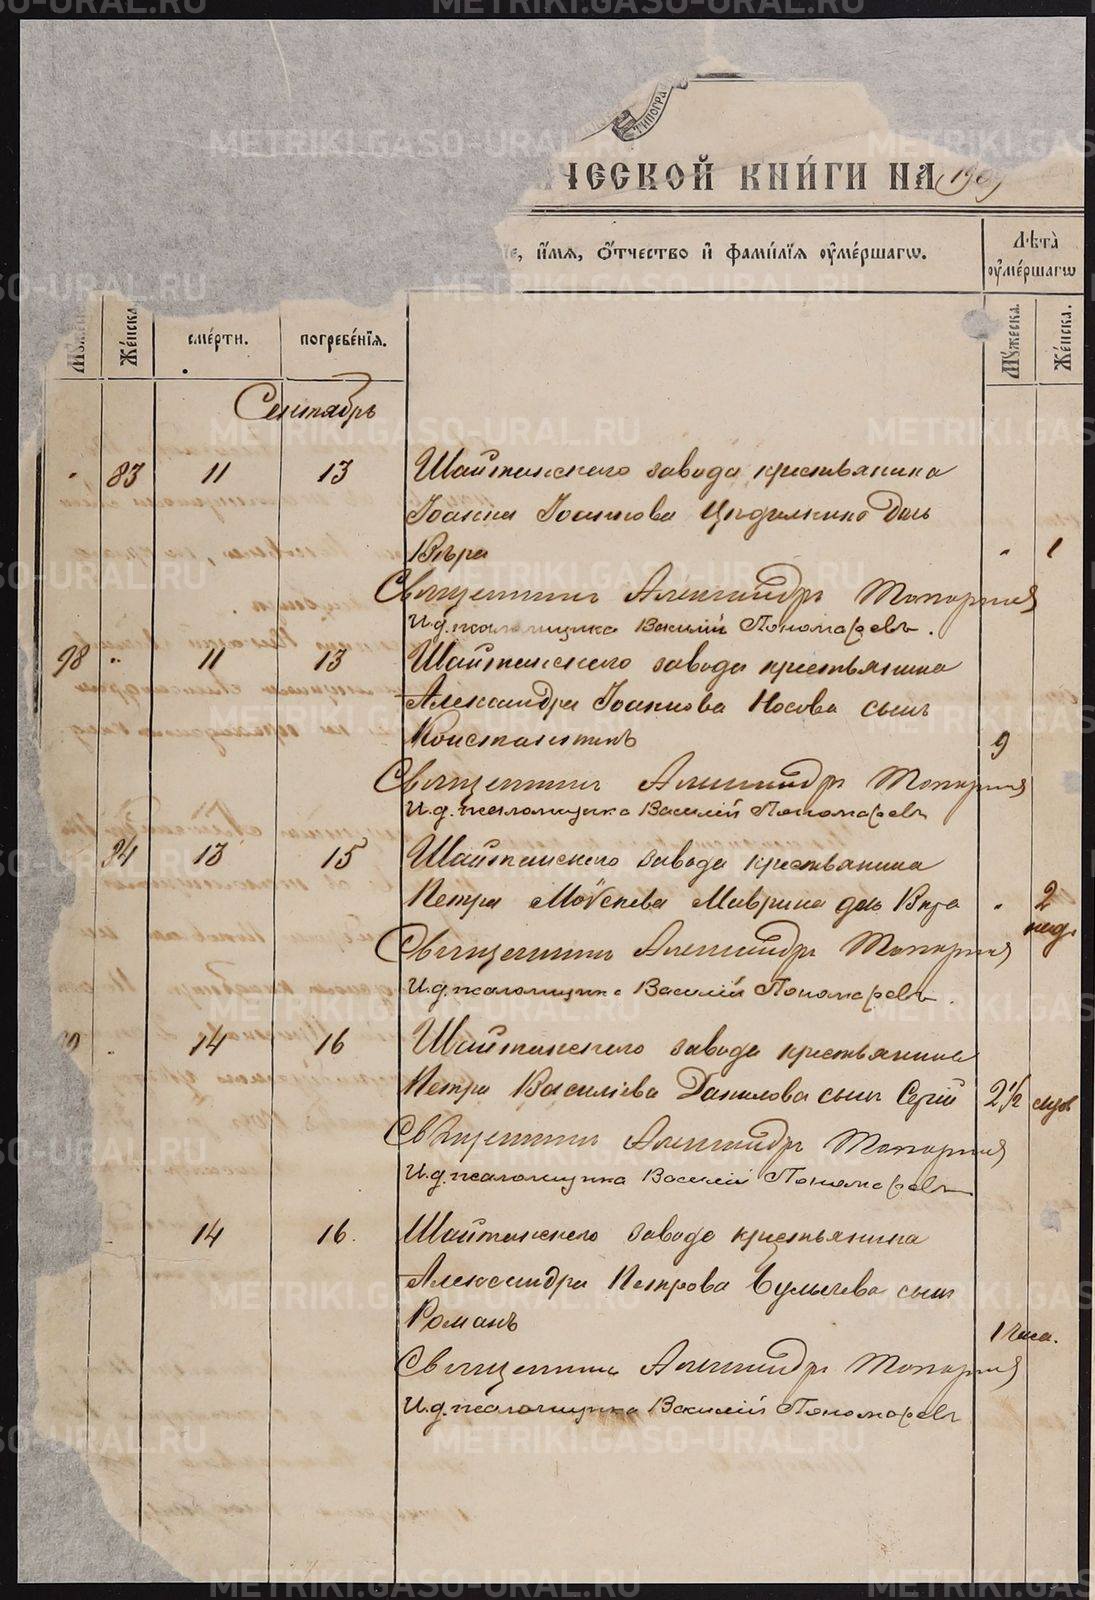 ТИПОГРА
ЧЕСКОЙ КНИ́ГИ НА 1909
и҆́мѧ, ѻ҆́тчество и҆ фами́лїѧ ᲂу҆ме́ршагѡ.
Лѣта̀ ᲂу҆ме́ршагѡ
Же́нска.
сме́рти.
погребе́нїѧ.
Мꙋ́жеска.
Же́нска.
Сентябрь
" 83 11 13 Шайтанскаго завода крестьянина
Іоанна Іоаннова дочь
Вѣра " 1
Священникъ Александръ Топорковъ
И.д. псаломщика Василій Пономаревъ.
98 " 11 13 Шайтанскаго завода крестьянина
Александра Іоаннова Носова сынъ
Константинъ 9
Священникъ Александръ Топорковъ
И.д. псаломщика Василій Пономаревъ
94 13 15 Шайтанскаго завода крестьянина
Петра Моѵсеева Маврина дочь Вѣра " 2
нед.
Священникъ Александръ Топорковъ
И.д. псаломщика Василій Пономаревъ.
14 16 Шайтанскаго завода крестьянина
Петра Василіева Данилова сынъ Сергій 2 1/2 мѣс
Священникъ Александръ Топорковъ
И.д. псаломщика Василій Пономаревъ
14 16. Шайтанскаго завода крестьянина
Александра Петрова Булычева сынъ
Романъ 1 часа.
Священникъ Александръ Топорковъ
И.д. псаломщика Василій Пономаревъ
METRIKI.GASO-URAL.RU